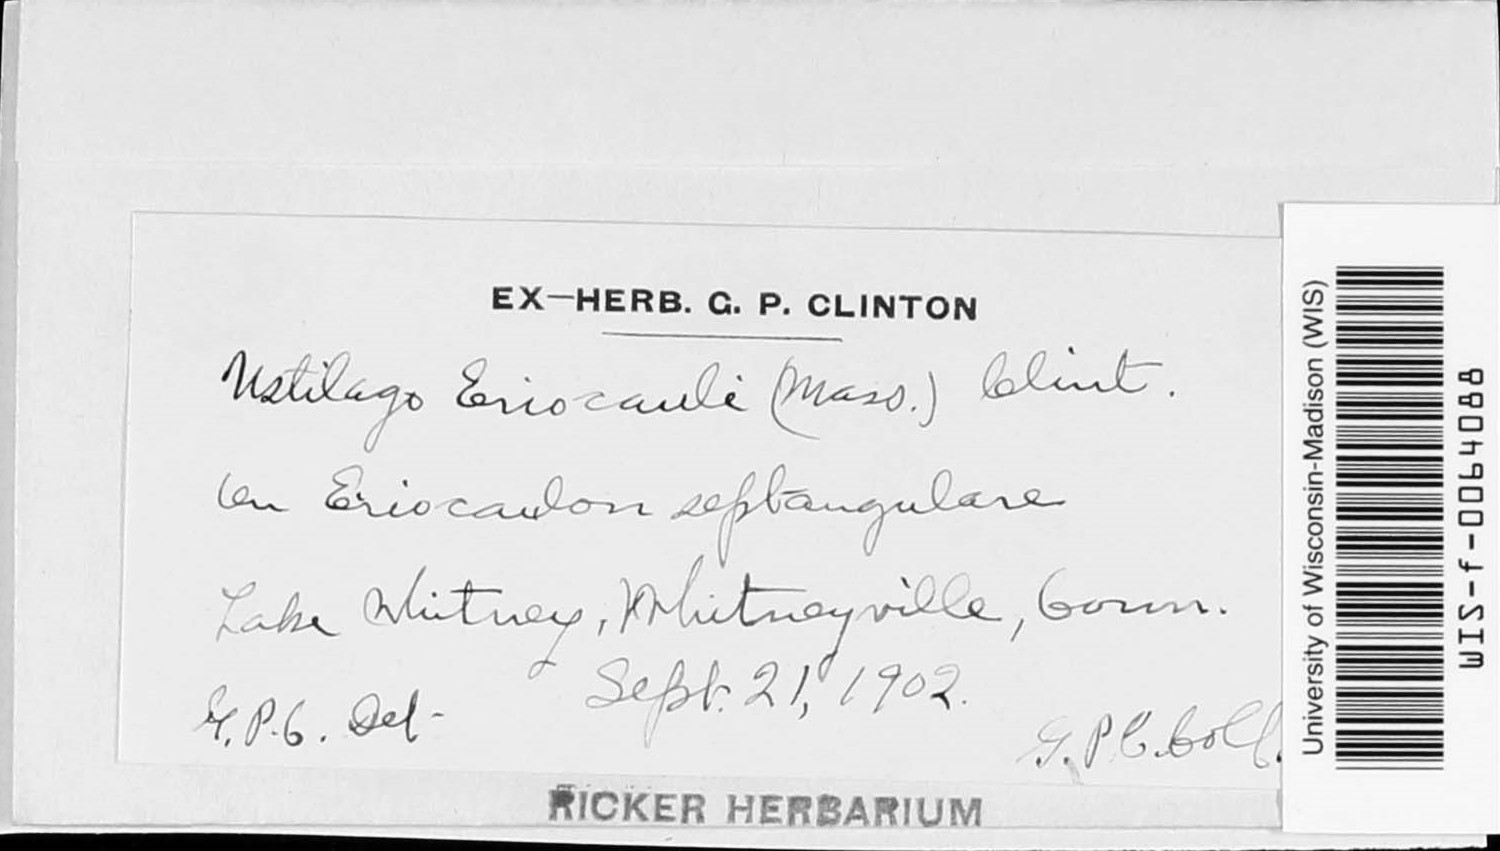 EX—HERB. G. P. CLINTON
Ustilago Eriocauli (Mass.) Clint.
On Eriocaulon septangulare
Lake Whitney, Whitneyville, Conn.
Sept. 21, 1902.
G. P. C. Det-
G. P. C. Coll.
RICKER HERBARIUM
University of Wisconsin-Madison (WIS)
WIS-f-0064088